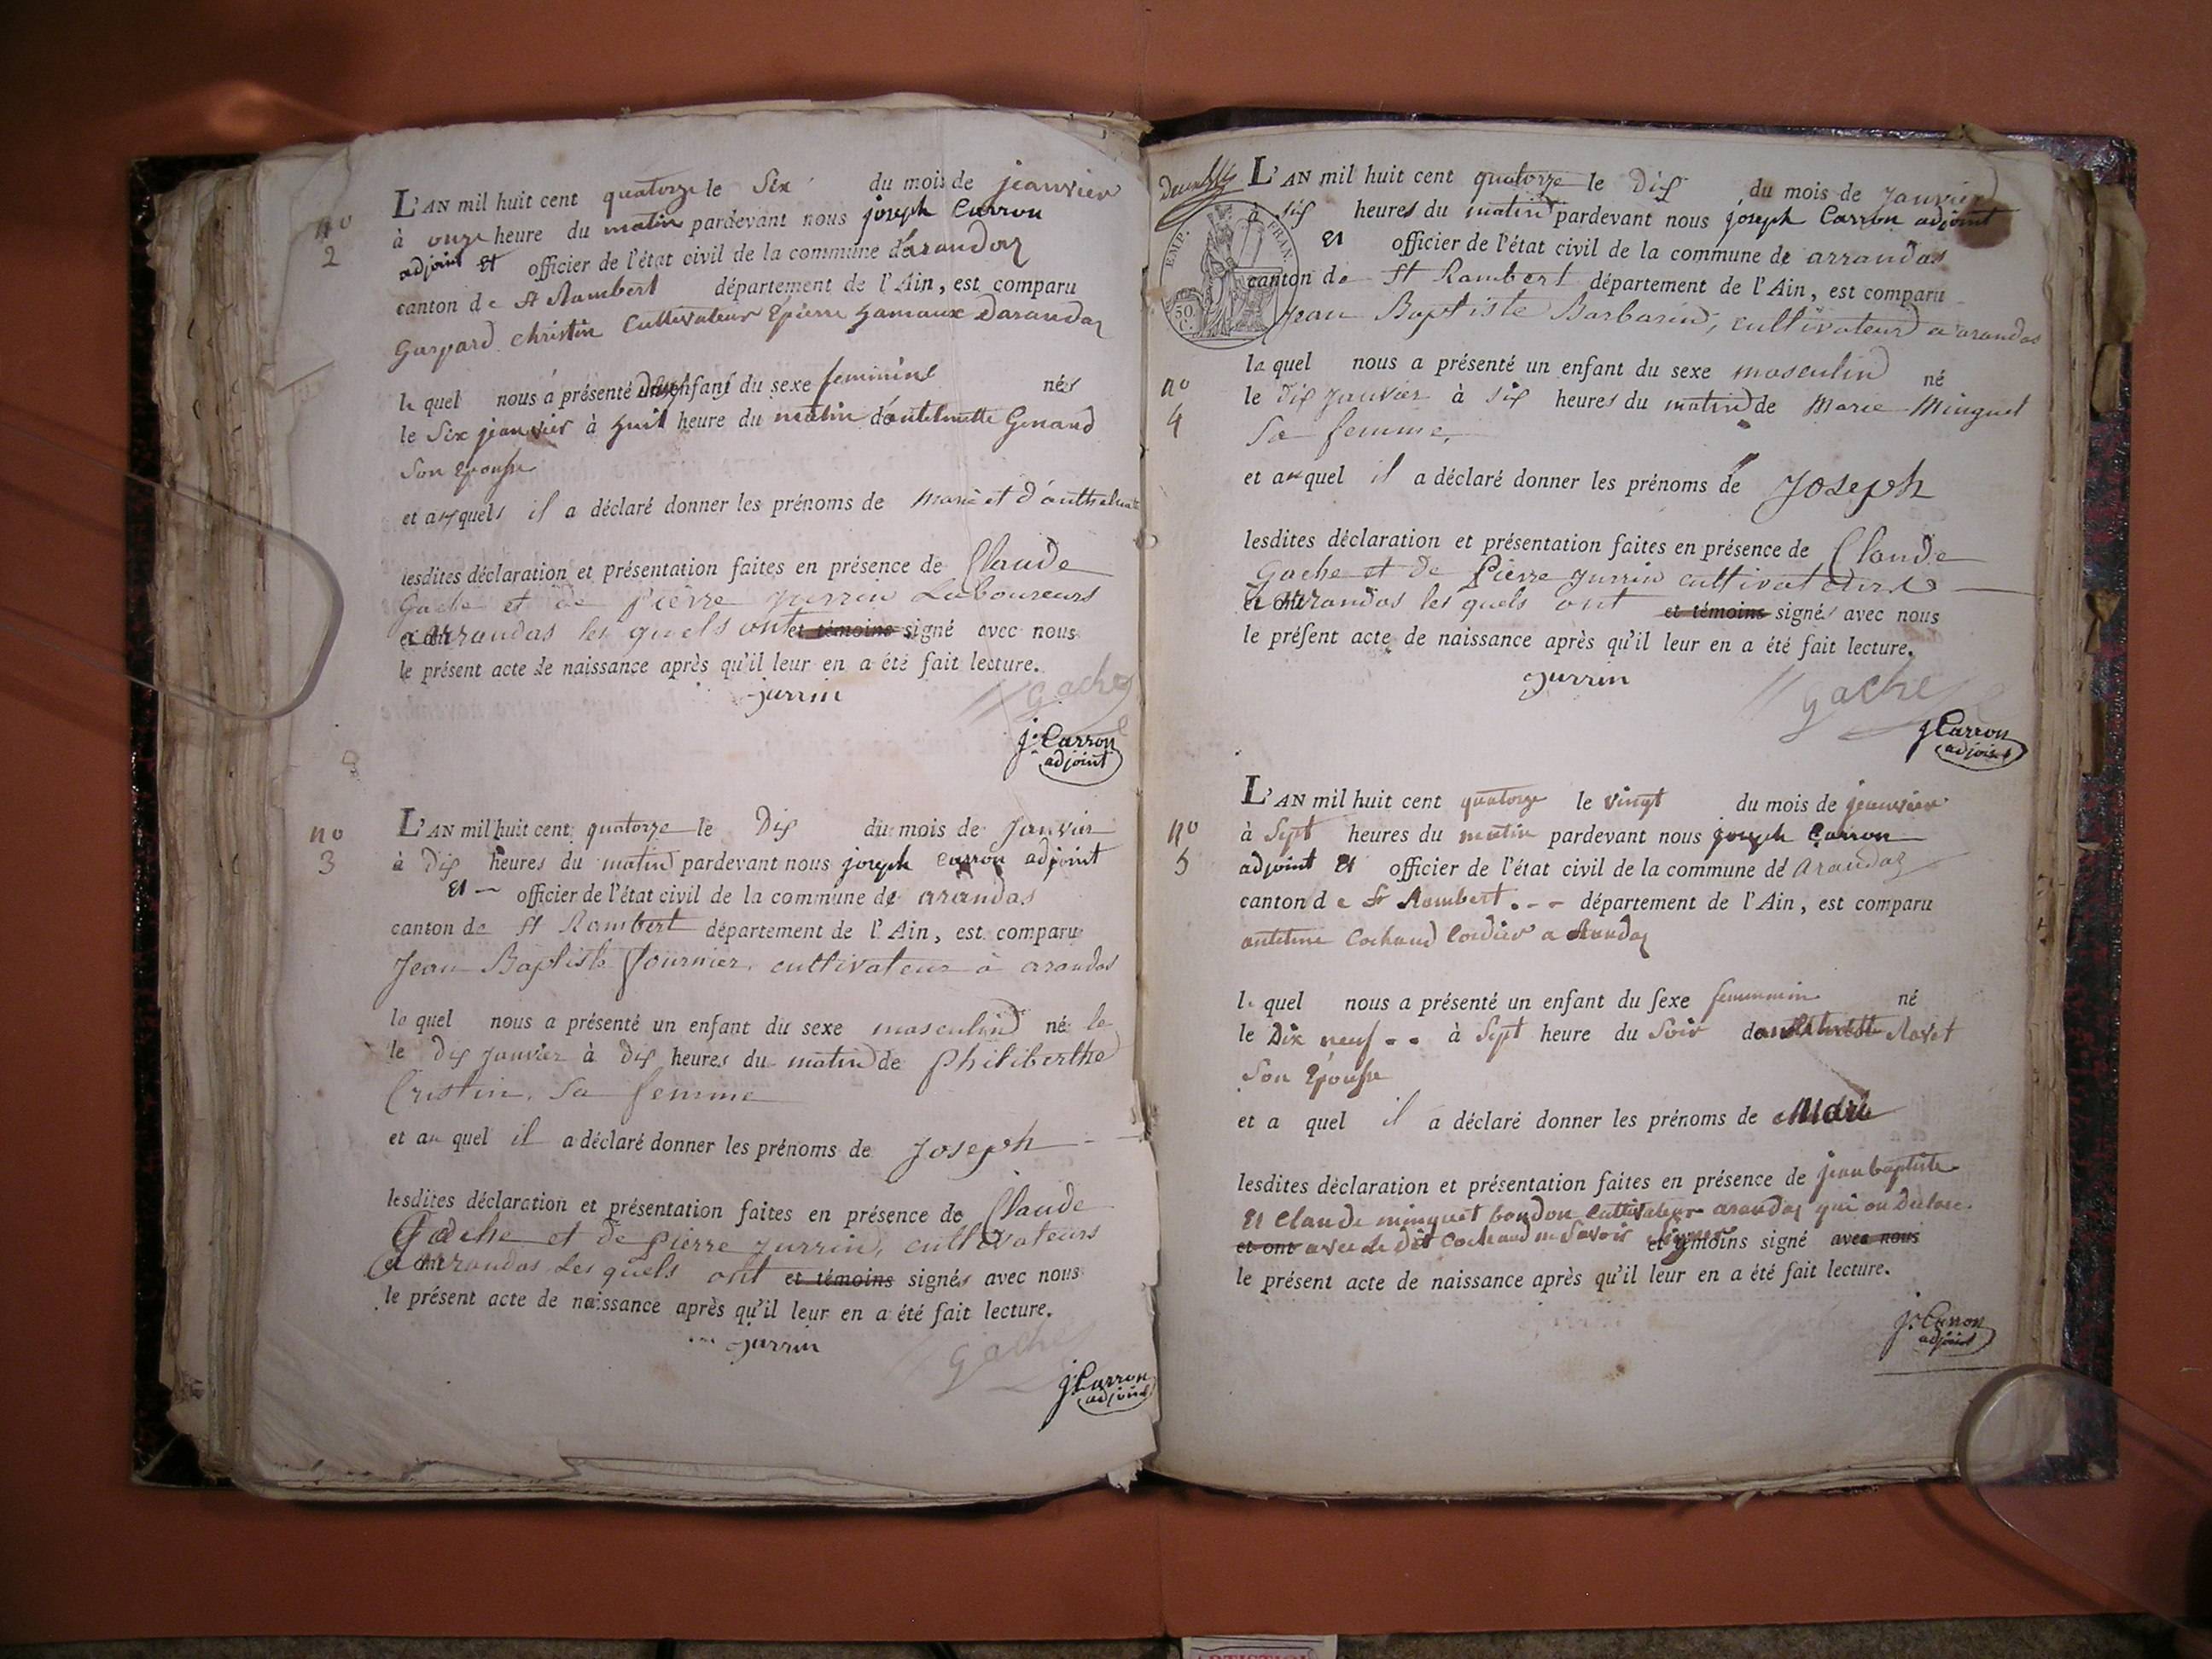 n° 2
L'AN mil huit cent quatorze le Six du mois de jeanvier
à onze heure du matin pardevant nous joseph Carron
adjoint Et officier de l'état civil de la commune d'arandaz
canton de St Rambert département de l'Ain, est comparu
Gaspard Christin Cultivateur Darandaz
le quel nous a présenté deux enfant du sexe feminine nés
le Six jeanvier à huit heure du matin d'antelmette Genand
Son Epouse
et auxquels il a déclaré donner les prénoms de Marie et d'anthelmette
lesdites déclaration et présentation faites en présence de Claude
Gache et de Pierre Jurrin Laboureurs
a arrandas les quels ont et témoins signé avec nous
le présent acte de naissance après qu'il leur en a été fait lecture.
Jurrin Gache
J. Carron
adjoint
n° 3
L'AN mil huit cent quatorze le Dix du mois de Janvier
à Dix heures du matin pardevant nous joseph Carron adjoint
Et officier de l'état civil de la commune de arandas
canton de St Rambert département de l'Ain, est comparu
Jean Baptiste Fournier, cultivateur à arandas
le quel nous a présenté un enfant du sexe masculin né le
le Dix Janvier à Dix heures du matin de Philiberthe
Cristin, Sa femme
et au quel il a déclaré donner les prénoms de Joseph
lesdites déclaration et présentation faites en présence de Claude
Gache et de Pierre Jurrin, cultivateurs
a arrandas Les quels ont et témoins signés avec nous
le présent acte de naissance après qu'il leur en a été fait lecture.
Jurrin Gache
J. Carron
adjoint
EMP. FRAN.
50 C.
L'AN mil huit cent quatorze le Dix du mois de Janvier
à six heures du matin pardevant nous joseph Carron adjoint
Et officier de l'état civil de la commune de arrandas
canton de St Rambert département de l'Ain, est comparu
Jean Baptiste Barbarin, cultivateur a arandas
le quel nous a présenté un enfant du sexe masculin né
n° 4
le Dix Janvier à six heures du matin de Marie Minguet
Sa femme,
et auquel il a déclaré donner les prénoms de Joseph
lesdites déclaration et présentation faites en présence de Claude
Gache et de Pierre Jurrin cultivateurs
a arrandas les quels ont et témoins signés avec nous
le présent acte de naissance après qu'il leur en a été fait lecture.
Jurrin Gache
J Carron
adjoint
n° 5
L'AN mil huit cent quatorze le vingt du mois de jeanvier
à Sept heures du matin pardevant nous joseph Carron
adjoint Et officier de l'état civil de la commune de Arandaz
canton de St Rambert. - - département de l'Ain, est comparu
antelme Cochaud Cordier a Arandaz
le quel nous a présenté un enfant du sexe femminin né
le Dix neuf - - à Sept heure du Soir Ravet
Son Epouse
et a quel il a déclaré donner les prénoms de Marie
lesdites déclaration et présentation faites en présence de jean baptiste
Et Claude minguet bondon Cultivateur arandaz qui on declare
et ont avec le Dit Cochaud ne Savoir signer et témoins signé avec nous
le présent acte de naissance après qu'il leur en a été fait lecture.
J. Carron
adjoint